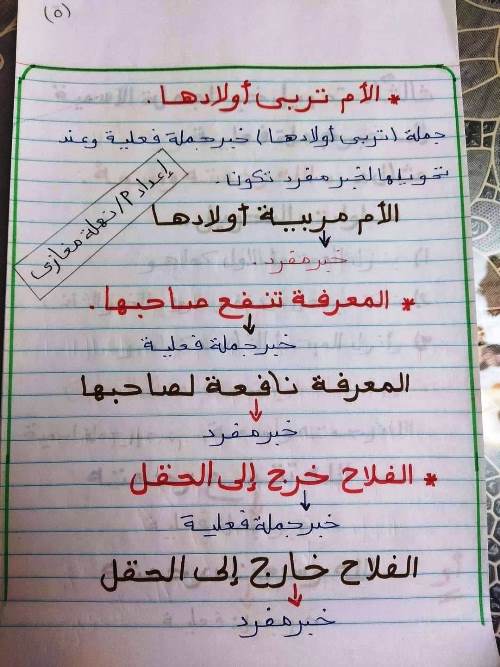 (٥)
* الأم تربى أولادها.
جملة (تربى أولادها) خبر جملة فعلية وعند
تحويلها لخبر مفرد تكون.
الأم مربية أولادها
خبر مفرد.
إعداد م/ نهلة مغازى
* المعرفة تنفع صاحبها.
خبر جملة فعلية
المعرفة نافعة لصاحبها
خبر مفرد
* الفلاح خرج إلى الحقل
خبر جملة فعلية
الفلاح خارج إلى الحقل
خبر مفرد